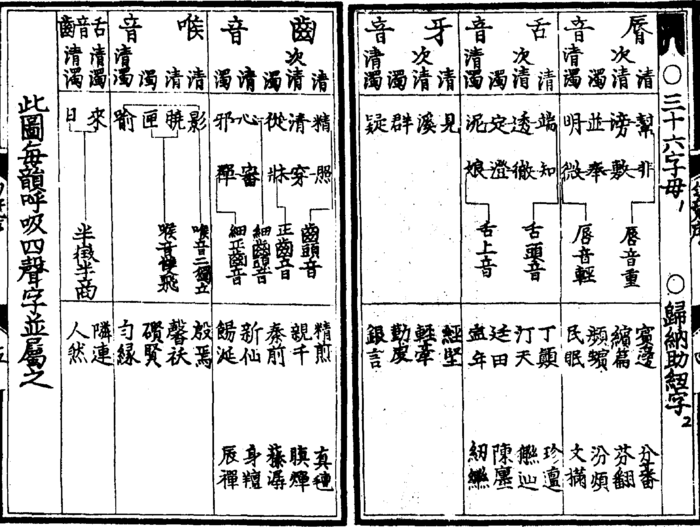 ○三十六字母1 ○歸納助紐字2
脣音
清 幫 非 賓邊 分番
次清 滂 敷 繽篇 芬翻
濁 並 奉 頻蠙 汾煩
清濁 明 微 民眠 文樠
脣音重
脣音輕
舌音
清 端 知 丁顛 珍邅
次清 透 徹 汀天 辿
濁 定 澄 廷田 陳廛
清濁 泥 娘 寧年 紉
舌頭音
舌上音
牙音
清 見 經堅
次清 溪 輕牽
濁 群 勤虔
清濁 疑 銀言
齒音
清 精 照 精煎 真氈
次清 清 穿 親千 瞋燀
濁 從 牀 秦前 榛潺
清 心 審 新仙 身羶
濁 邪 禪 餳涎 辰禪
齒頭音
正齒音
細齒頭音
細正齒音
喉音
清 影 殷焉
清 曉 馨祆
濁 匣 礥賢
清濁 喻 勻緣
喉音二獨立
喉音雙飛
舌音 清濁 來 隣連
齒音 清濁 日 人然
半徵半商
此圖每韻呼吸四聲字並屬之